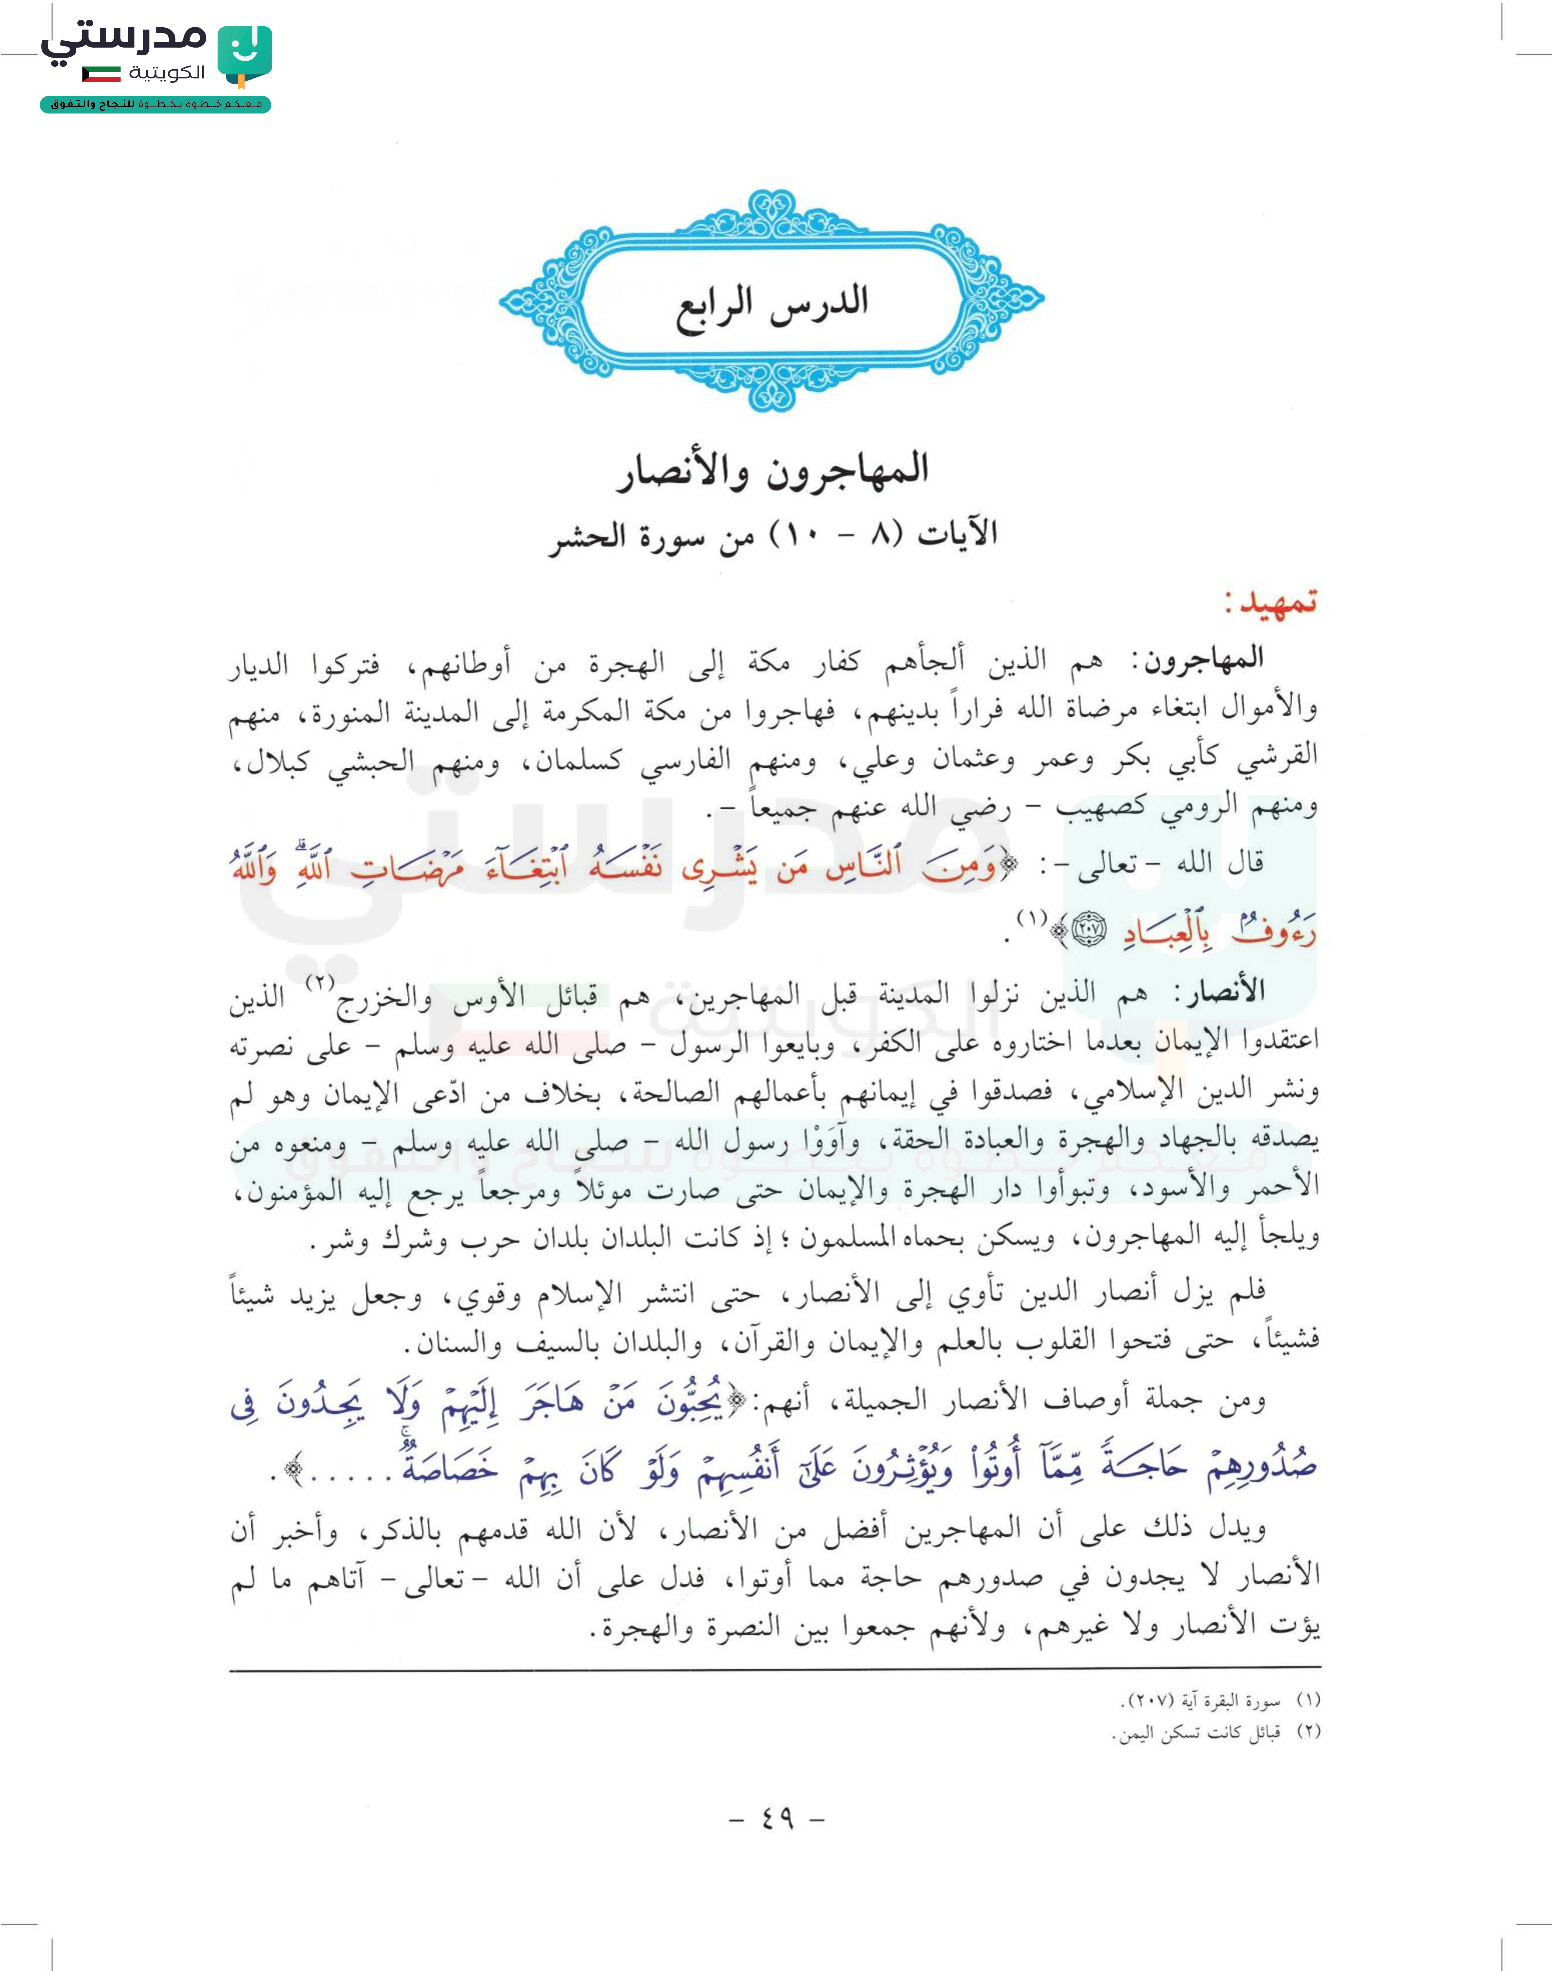 مدرستي
الكويتية
معكم خطوة بخطوة للنجاح والتفوق
الدرس الرابع
المهاجرون والأنصار
الآيات (٨ – ١٠) من سورة الحشر
تمهيد:
المهاجرون: هم الذين ألجأهم كفار مكة إلى الهجرة من أوطانهم، فتركوا الديار
والأموال ابتغاء مرضاة الله فراراً بدينهم، فهاجروا من مكة المكرمة إلى المدينة المنورة، منهم
القرشي كأبي بكر وعمر وعثمان وعلي، ومنهم الفارسي كسلمان، ومنهم الحبشي كبلال،
ومنهم الرومي كصهيب – رضي الله عنهم جميعاً –.
قال الله –تعالى–: ﴿وَمِنَ ٱلنَّاسِ مَن يَشۡرِى نَفۡسَهُ ٱبۡتِغَآءَ مَرۡضَاتِ ٱللَّهِۗ وَٱللَّهُ
رَءُوفُۢ بِٱلۡعِبَادِ ٢٠٧﴾(١).
الأنصار: هم الذين نزلوا المدينة قبل المهاجرين، هم قبائل الأوس والخزرج(٢) الذين
اعتقدوا الإيمان بعدما اختاروه على الكفر، وبايعوا الرسول – صلى الله عليه وسلم – على نصرته
ونشر الدين الإسلامي، فصدقوا في إيمانهم بأعمالهم الصالحة، بخلاف من ادّعى الإيمان وهو لم
يصدقه بالجهاد والهجرة والعبادة الحقة، وآوَوْا رسول الله – صلى الله عليه وسلم – ومنعوه من
الأحمر والأسود، وتبوأوا دار الهجرة والإيمان حتى صارت موئلاً ومرجعاً يرجع إليه المؤمنون،
ويلجأ إليه المهاجرون، ويسكن بحماه المسلمون؛ إذ كانت البلدان بلدان حرب وشرك وشر.
فلم يزل أنصار الدين تأوي إلى الأنصار، حتى انتشر الإسلام وقوي، وجعل يزيد شيئاً
فشيئاً، حتى فتحوا القلوب بالعلم والإيمان والقرآن، والبلدان بالسيف والسنان.
ومن جملة أوصاف الأنصار الجميلة، أنهم: ﴿يُحِبُّونَ مَنۡ هَاجَرَ إِلَيۡهِمۡ وَلَا يَجِدُونَ فِى
صُدُورِهِمۡ حَاجَةً مِّمَّآ أُوتُوا۟ وَيُؤۡثِرُونَ عَلَىٰٓ أَنفُسِهِمۡ وَلَوۡ كَانَ بِهِمۡ خَصَاصَةٌۚ.....﴾.
ويدل ذلك على أن المهاجرين أفضل من الأنصار، لأن الله قدمهم بالذكر، وأخبر أن
الأنصار لا يجدون في صدورهم حاجة مما أوتوا، فدل على أن الله –تعالى– آتاهم ما لم
يؤت الأنصار ولا غيرهم، ولأنهم جمعوا بين النصرة والهجرة.
(١) سورة البقرة آية (٢٠٧).
(٢) قبائل كانت تسكن اليمن.
– ٤٩ –